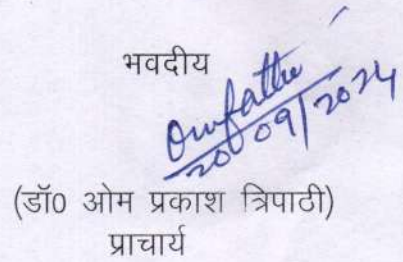 भवदीय
20/09/2024
(डॉ0 ओम प्रकाश त्रिपाठी)
प्राचार्य